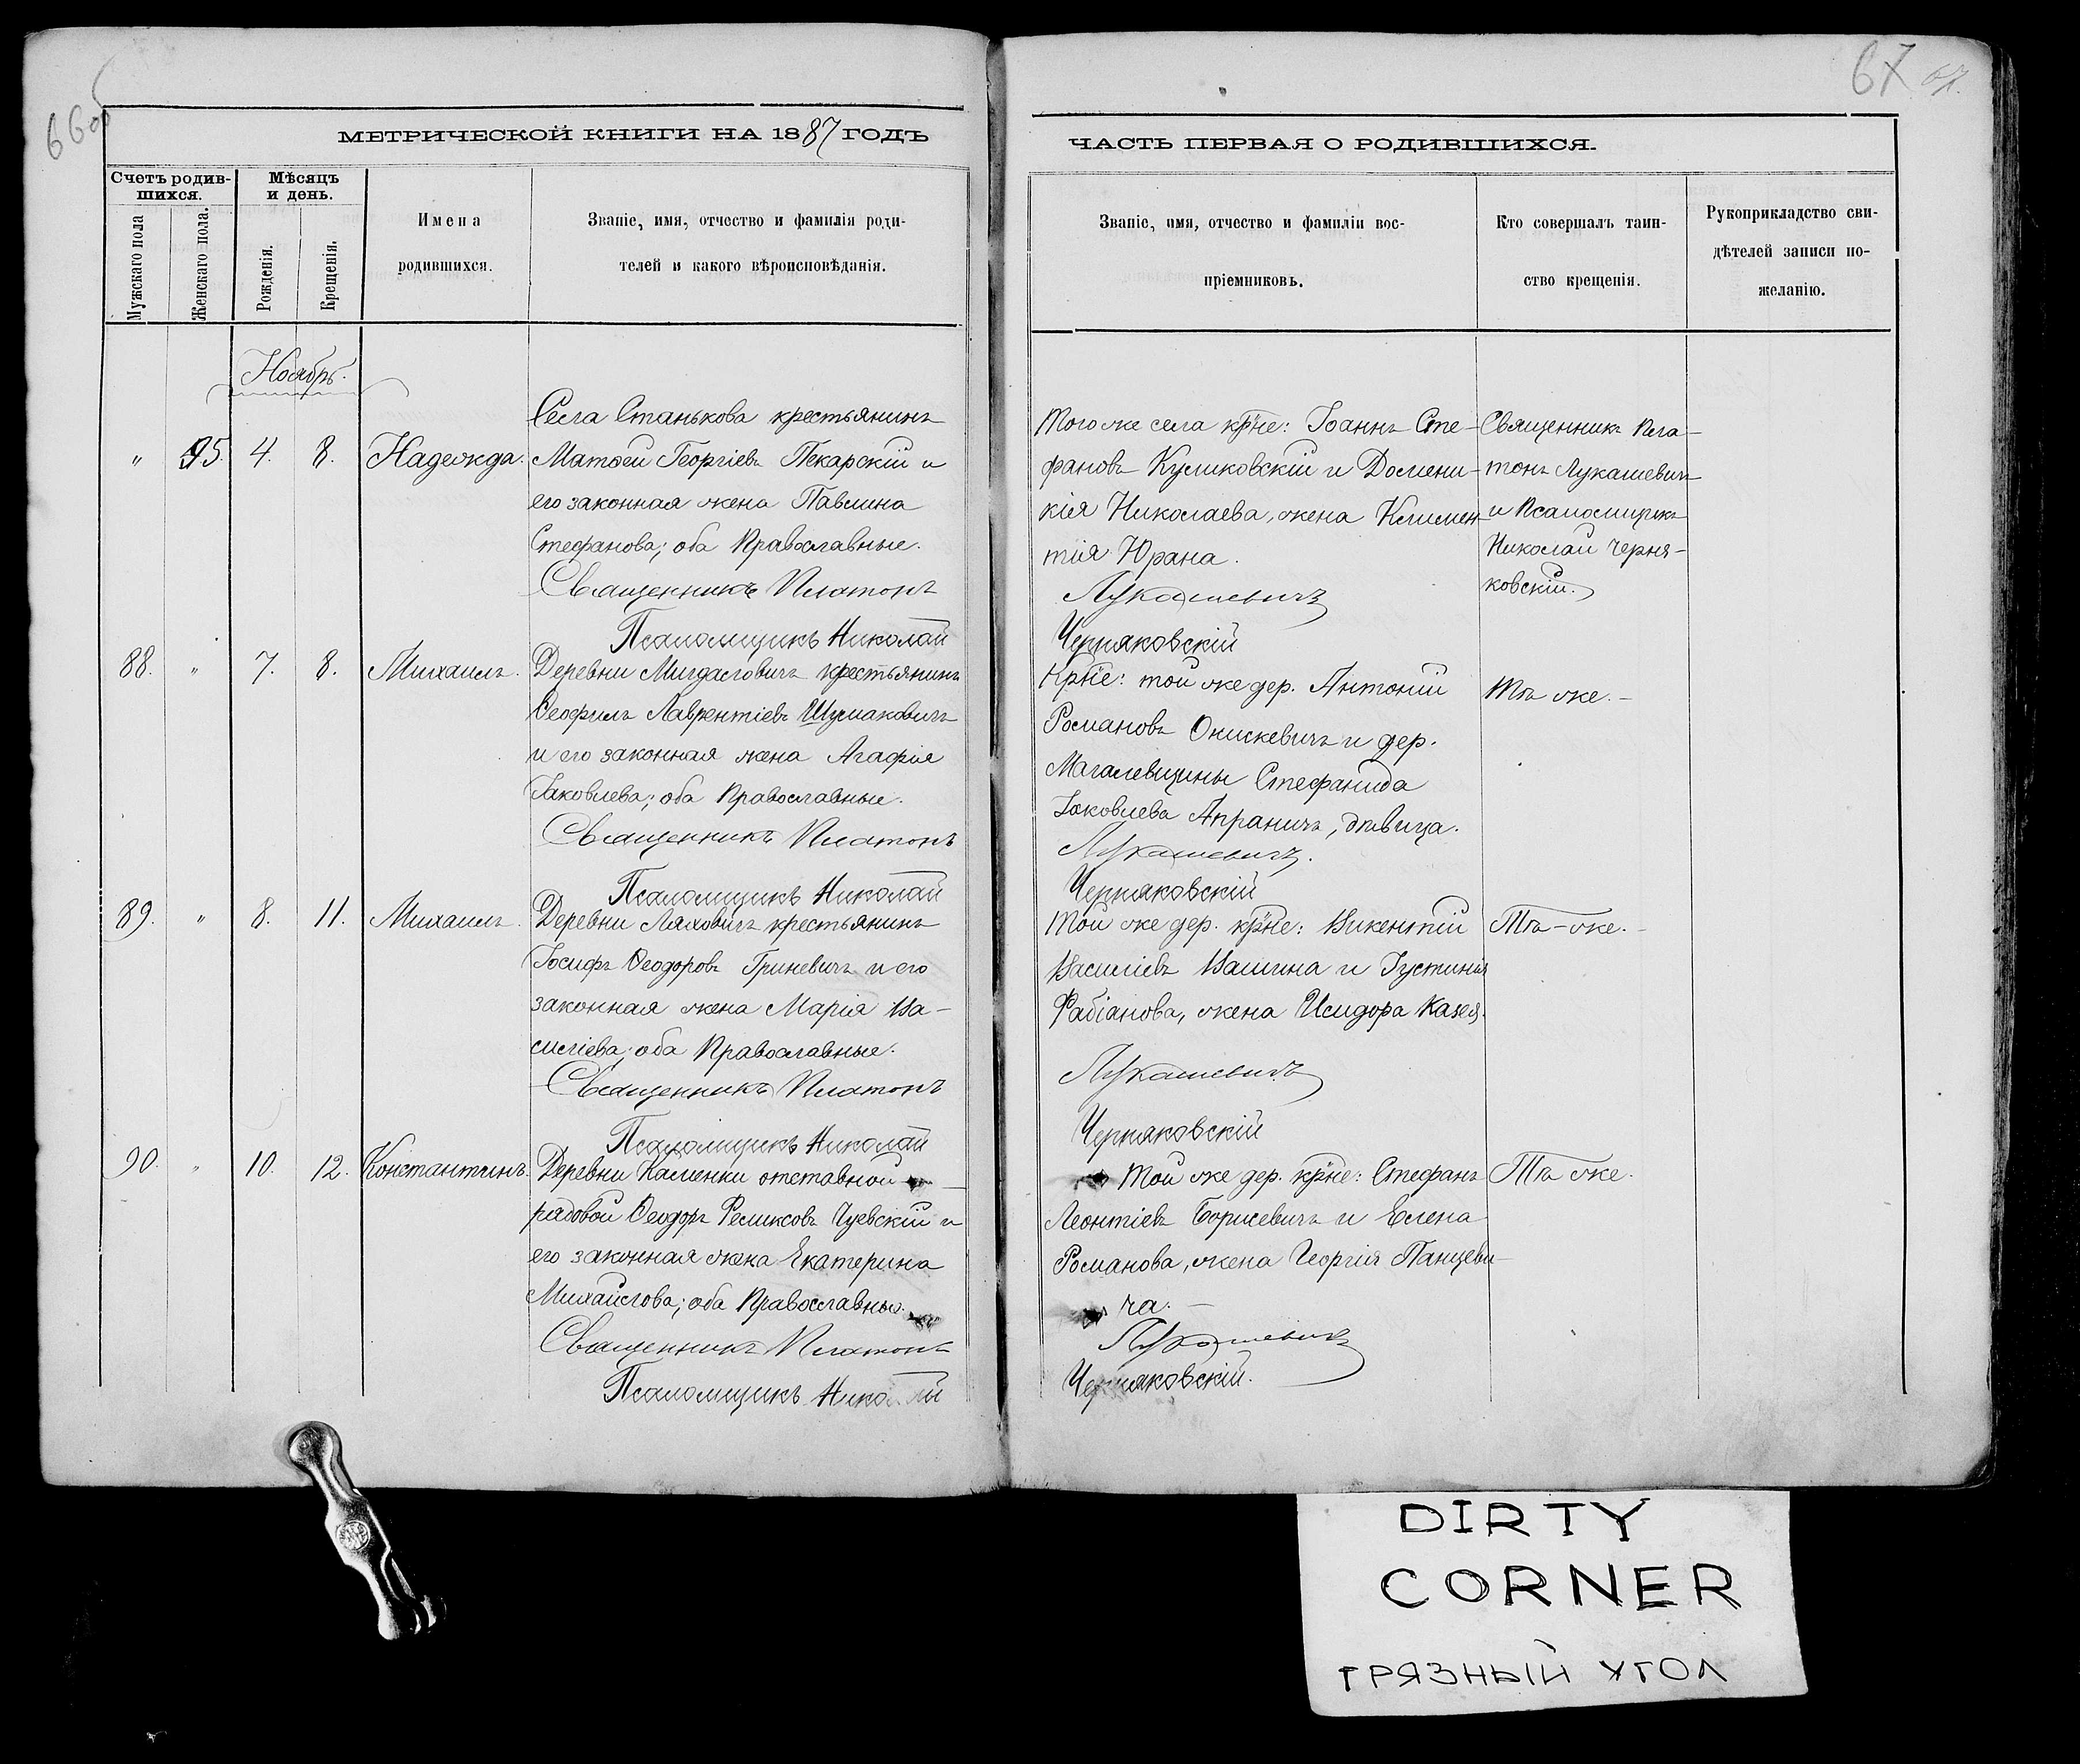 66об
МЕТРИЧЕСКОЙ КНИГИ НА 1887 ГОДЪ
Счетъ родив-
шихся.
Мѣсяцъ
и день.
Мужскаго пола
Женскаго пола.
Рожденія.
Крещенія.
Имена
родившихся.
Званіе, имя, отчество и фамилія роди-
телей и какого вѣроисповѣданія.
Ноябрь.
Села Станькова крестьянинъ
" 95. 4. 8. Надежда. Матѳей Георгіевъ Пекарскій и
его законная жена Павлина
Стефанова; оба Православные.
Священникъ Платонъ
Псаломщикъ Николай
88. " 7. 8. Михаилъ. Деревни Мигдаловичъ крестьянинъ
Ѳеофилъ Лаврентіевъ Шумаковичъ
и его законная жена Агафія
Іаковлева; оба Православные.
Священникъ Платонъ
Псаломщикъ Николай
89. " 8. 11. Михаилъ. Деревни Ляховичъ крестьянинъ
Іосифъ Ѳеодоровъ Гриневичъ и его
законная жена Марія Ва-
силіева; оба Православные.
Священникъ Платонъ
Псаломщикъ Николай
90. " 10. 12. Константинъ. Деревни Каменки отставной
рядовой Ѳеодоръ Феликсовъ Чуевскій и
его законная жена Екатерина
Михайлова; оба Православные.
Священникъ Платонъ
Псаломщикъ Николай
67 67.
ЧАСТЬ ПЕРВАЯ О РОДИВШИХСЯ.
Званіе, имя, отчество и фамиліи вос-
пріемниковъ.
Кто совершалъ таин-
ство крещенія.
Рукоприкладство сви-
дѣтелей записи по-
желанію.
Того же села кр̃не: Іоаннъ Сте-
фановъ Куликовскій и Домени-
кія Николаева, жена Климен-
тія Юрана.
Лукашевичъ
Черняковскій
Священникъ Пла-
тонъ Лукашевичъ
и Псаломщикъ
Николай Черня-
ковскій.
Кр̃не: той же дер. Антоній
Романовъ Онискевичъ и дер.
Магалевщины Стефанида
Іаковлева Апраничъ, дѣвица.
Лукашевичъ.
Черняковскій
Тѣ же.-
Той же дер. кр̃не: Викентій
Василіевъ Валина и Іустинія
Фабіанова, жена Исидора Казея.
Лукашевичъ
Черняковскій
Тѣ-же.-
Той же дер. кр̃не: Стефанъ
Леонтіевъ Борисевичъ и Елена
Романова, жена Георгія Панцеви-
ча.-
Лукашевичъ
Черняковскій.
Тѣ же.
DIRTY
CORNER
ГРЯЗНЫЙ УГОЛ